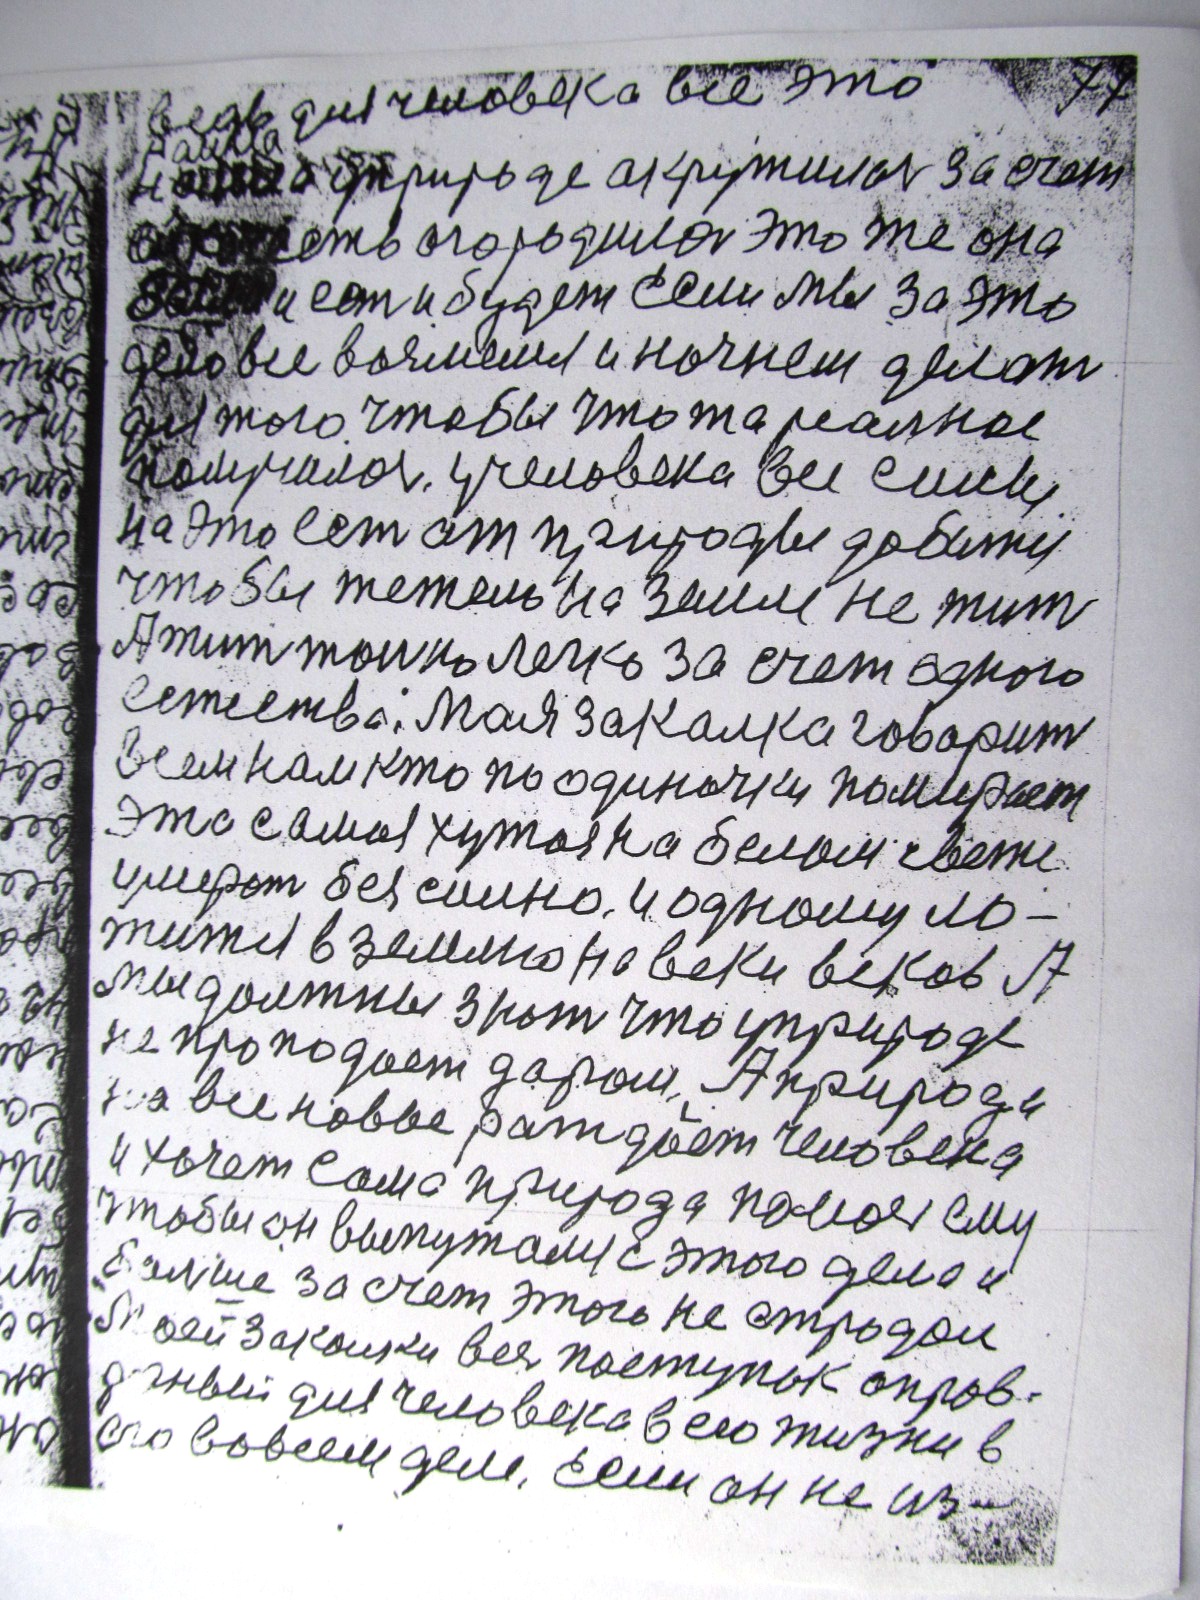 ведь для человека все это 77
наша
природе акружилас за счет
есть огородилас это же она
и ест и будет Если мы за это
дело все возмемся и начнем делат
для того чтобы что та реалное
получилос. у человека все силы
на это ест от природы добыты
чтобы тежело на земли не жит
А жит толко легко за счет одного
естества. Мая закалка говарит
всем нам кто по одиночки помирает
это самая хутоя на белом свете
умерат безсилно. и одному ло-
жится в землю на веки веков А
мы должны знат что у природе
не пропадает даром. А природа
на все новое раждает человека
и хочет сама природа помоч ему
чтобы он выпутался с этого дела и
болше за счет этого не страдал
Моей закалки вся поступок оправ-
даный для человека в его жизни в
его вовсем деле. Если он не из-